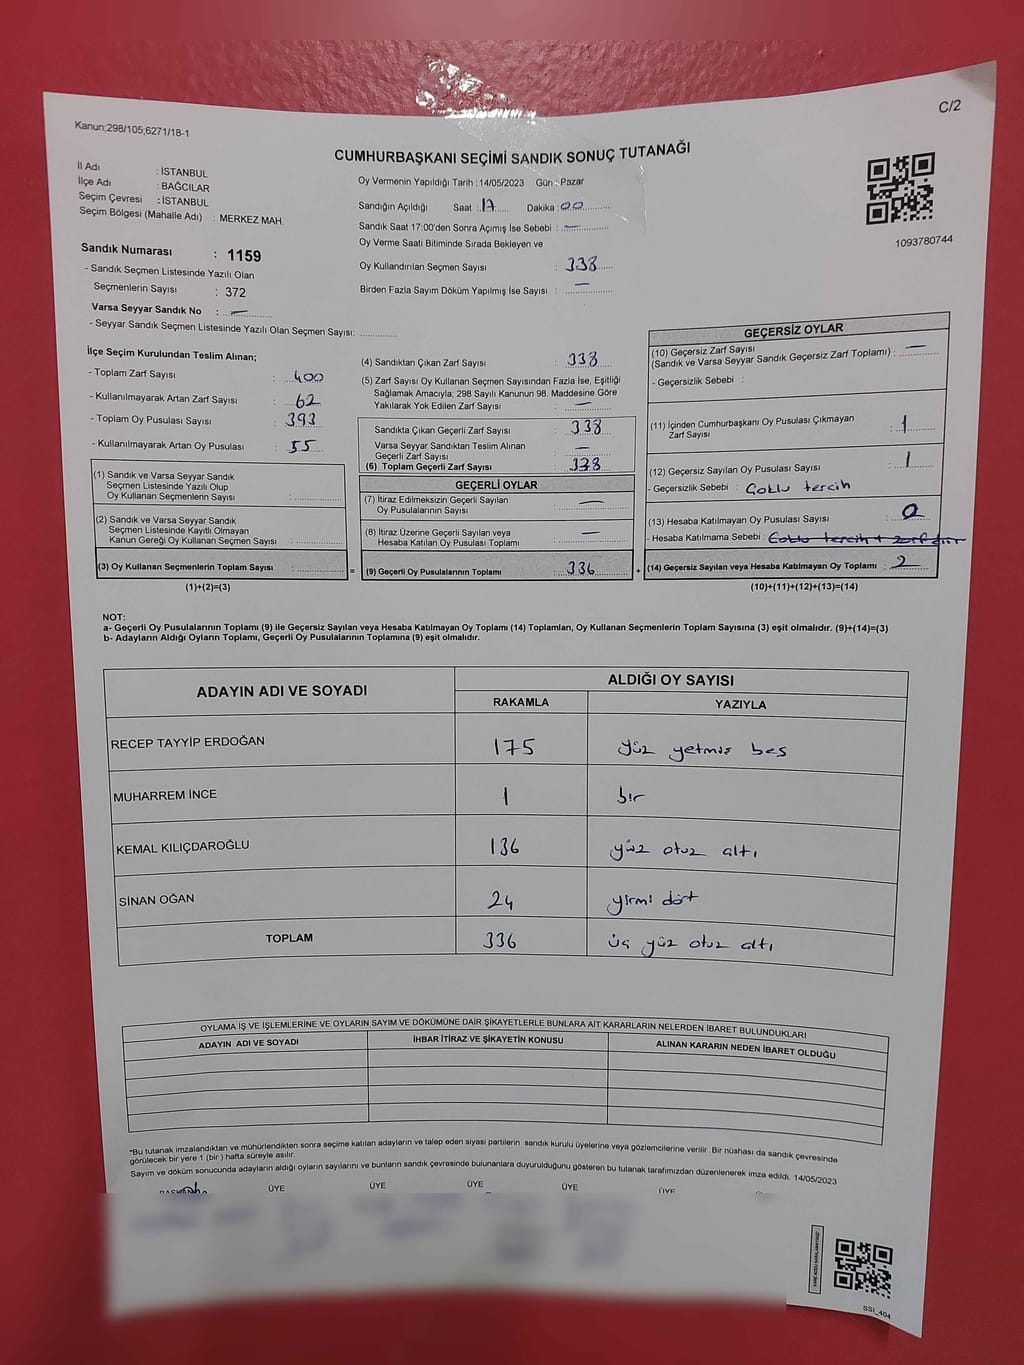 C/2
Kanun;298/105;6271/18-1
CUMHURBAŞKANI SEÇİMİ SANDIK SONUÇ TUTANAĞI
İl Adı : İSTANBUL
İlçe Adı : BAĞCILAR
Seçim Çevresi : İSTANBUL
Seçim Bölgesi (Mahalle Adı) : MERKEZ MAH.
Oy Vermenin Yapıldığı Tarih : 14/05/2023 Gün : Pazar
Sandığın Açıldığı Saat : 17 Dakika : 00
Sandık Saat 17:00'den Sonra Açımış İse Sebebi : —
Oy Verme Saati Bitiminde Sırada Bekleyen ve
Oy Kullandırılan Seçmen Sayısı : 338
Birden Fazla Sayım Döküm Yapılmış İse Sayısı : —
1093780744
Sandık Numarası : 1159
- Sandık Seçmen Listesinde Yazılı Olan
Seçmenlerin Sayısı : 372
Varsa Seyyar Sandık No : —
- Seyyar Sandık Seçmen Listesinde Yazılı Olan Seçmen Sayısı:
İlçe Seçim Kurulundan Teslim Alınan;
- Toplam Zarf Sayısı : 400
- Kullanılmayarak Artan Zarf Sayısı : 62
- Toplam Oy Pusulası Sayısı : 393
- Kullanılmayarak Artan Oy Pusulası : 55
(1) Sandık ve Varsa Seyyar Sandık
Seçmen Listesinde Yazılı Olup
Oy Kullanan Seçmenlerin Sayısı :
(2) Sandık ve Varsa Seyyar Sandık
Seçmen Listesinde Kayıtlı Olmayan
Kanun Gereği Oy Kullanan Seçmen Sayısı :
(3) Oy Kullanan Seçmenlerin Toplam Sayısı : =
(1)+(2)=(3)
(4) Sandıktan Çıkan Zarf Sayısı : 338
(5) Zarf Sayısı Oy Kullanan Seçmen Sayısından Fazla İse, Eşitliği
Sağlamak Amacıyla; 298 Sayılı Kanunun 98. Maddesine Göre
Yakılarak Yok Edilen Zarf Sayısı : —
Sandıkta Çıkan Geçerli Zarf Sayısı : 338
Varsa Seyyar Sandıktan Teslim Alınan
Geçerli Zarf Sayısı : —
(6) Toplam Geçerli Zarf Sayısı : 338
GEÇERLİ OYLAR
(7) İtiraz Edilmeksizin Geçerli Sayılan
Oy Pusulalarının Sayısı : —
(8) İtiraz Üzerine Geçerli Sayılan veya
Hesaba Katılan Oy Pusulası Toplamı : —
(9) Geçerli Oy Pusulalarının Toplamı : 336 +
GEÇERSİZ OYLAR
(10) Geçersiz Zarf Sayısı
(Sandık ve Varsa Seyyar Sandık Geçersiz Zarf Toplamı) : —
- Geçersizlik Sebebi :
(11) İçinden Cumhurbaşkanı Oy Pusulası Çıkmayan
Zarf Sayısı : 1
(12) Geçersiz Sayılan Oy Pusulası Sayısı : 1
- Geçersizlik Sebebi : Çoklu tercih
(13) Hesaba Katılmayan Oy Pusulası Sayısı : 0
- Hesaba Katılmama Sebebi : Çoklu tercih +
(14) Geçersiz Sayılan veya Hesaba Katılmayan Oy Toplamı : 2
(10)+(11)+(12)+(13)=(14)
NOT:
a- Geçerli Oy Pusulalarının Toplamı (9) ile Geçersiz Sayılan veya Hesaba Katılmayan Oy Toplamı (14) Toplamları, Oy Kullanan Seçmenlerin Toplam Sayısına (3) eşit olmalıdır. (9)+(14)=(3)
b- Adayların Aldığı Oyların Toplamı, Geçerli Oy Pusulalarının Toplamına (9) eşit olmalıdır.
ADAYIN ADI VE SOYADI ALDIĞI OY SAYISI
RAKAMLA YAZIYLA
RECEP TAYYİP ERDOĞAN 175 yüz yetmiş beş
MUHARREM İNCE 1 bir
KEMAL KILIÇDAROĞLU 136 yüz otuz altı
SİNAN OĞAN 24 yirmi dört
TOPLAM 336 üç yüz otuz altı
OYLAMA İŞ VE İŞLEMLERİNE VE OYLARIN SAYIM VE DÖKÜMÜNE DAİR ŞİKAYETLERLE BUNLARA AİT KARARLARIN NELERDEN İBARET BULUNDUKLARI
ADAYIN ADI VE SOYADI İHBAR İTİRAZ VE ŞİKAYETİN KONUSU ALINAN KARARIN NEDEN İBARET OLDUĞU
*Bu tutanak imzalandıktan ve mühürlendikten sonra seçime katılan adayların ve talep eden siyasi partilerin sandık kurulu üyelerine veya gözlemcilerine verilir. Bir nüshası da sandık çevresinde
görülecek bir yere 1 (bir ) hafta süreyle asılır.
Sayım ve döküm sonucunda adayların aldığı oyların sayılarını ve bunların sandık çevresinde bulunanlara duyurulduğunu gösteren bu tutanak tarafımızdan düzenlenerek imza edildi. 14/05/2023
BAŞKAN ÜYE ÜYE ÜYE ÜYE ÜYE
SSİ_404